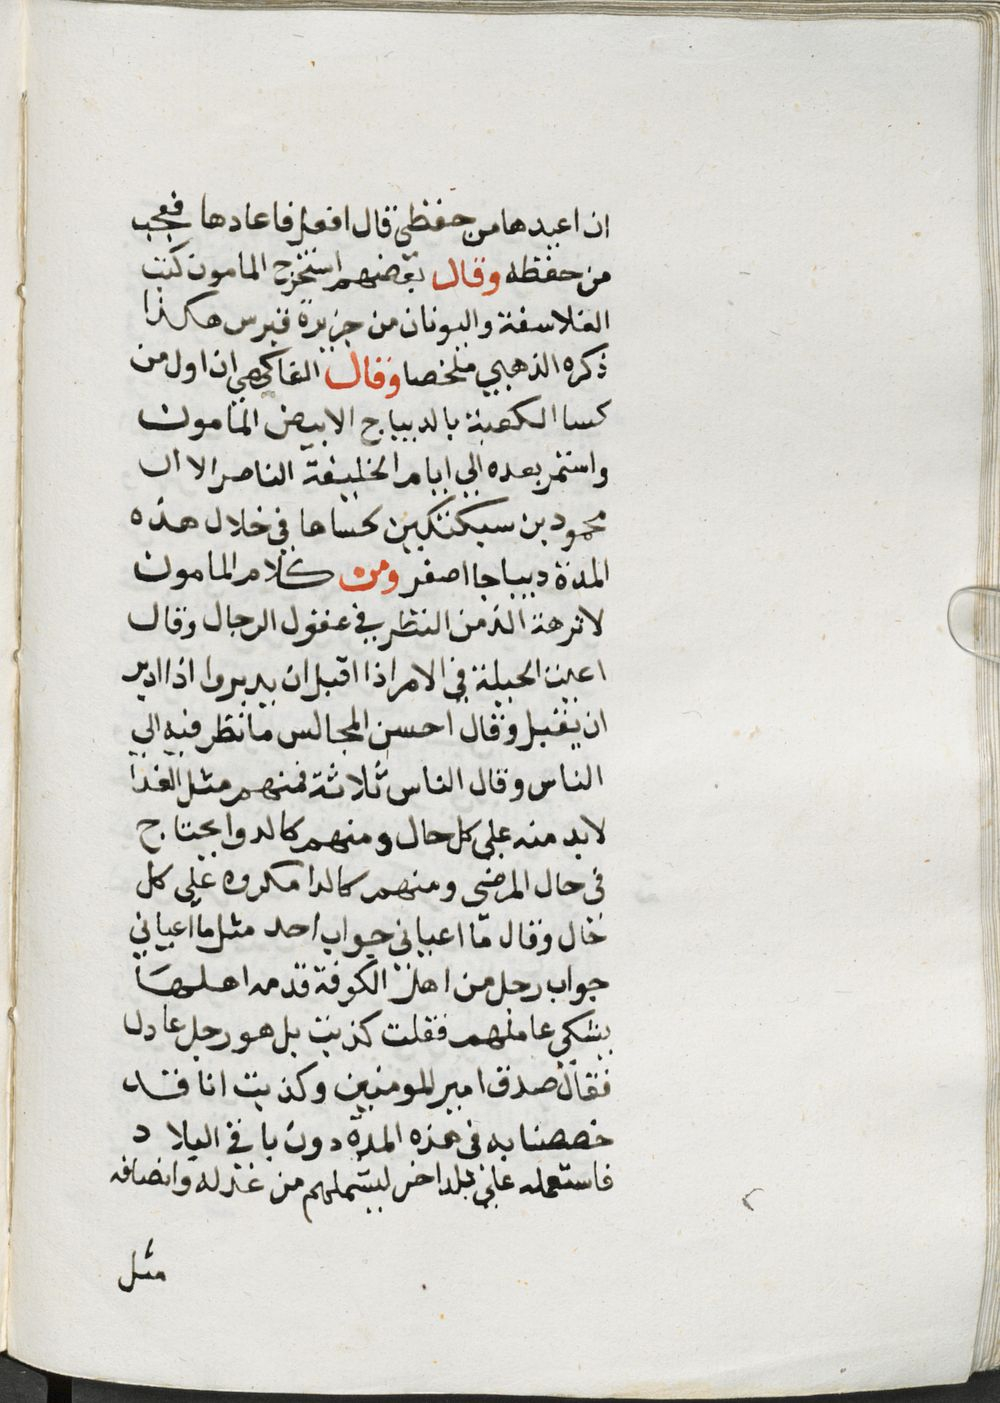 ان اعيدها من حفظي قال افعل فاعادها فعجب
من حفظه وقال بعضهم استخرج المامون كتب
الفلاسفة واليونان من جزيرة قبرس هكذا
ذكره الذهبي ملخصا وقال الفاكهي ان اول من
كسا الكعبة بالديباج الابيض المامون
واستمر بعده الي ايام الخليفة الناصر الا ان
محمود بن سبكتكين كساها في خلال هذه
المدة ديباجا اصفر ومن كلام المامون
لا نزهة الذ من النظر في عقول الرجال وقال
اعيت الحيلة في الامر اذا اقبل ان يدبروا اذا ادبر
ان يقبل وقال احسن المجالس ما نظر فيه الي
الناس وقال الناس ثلاثة فمنهم مثل الغذا
لابد منه علي كل حال ومنهم كالدوا يحتاج
في حال المرضي ومنهم كالدا مكروه علي كل
حال وقال ما اعياني جواب احد مثل ما اعياني
جواب رجل من اهل الكوفة قدمه اهلها
يشكي عاملهم فقلت كذبت بل هو رجل عادل
فقال صدق امير المومنين وكذبت انا قد
خصصنا به في هذه المدة دون باقي البلاد
فاستعمله علي بلد اخر ليشملهم من عدله وانصافه
مثل